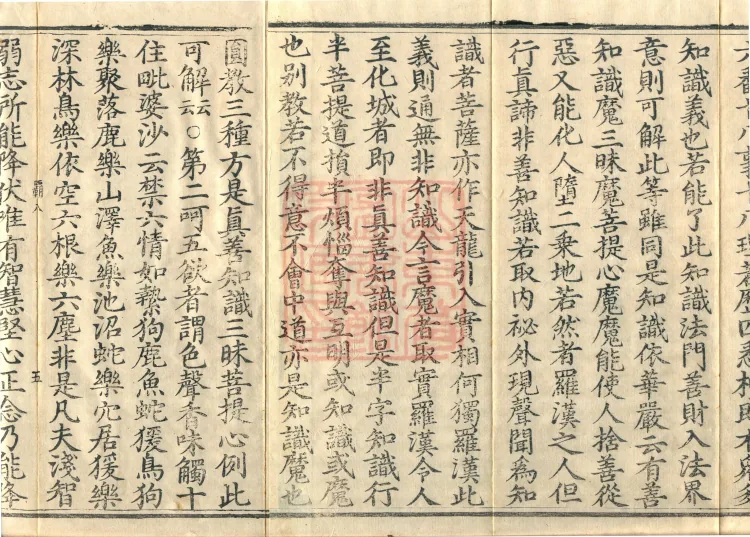 知識義也若能了此知識法門善財入法界
意則可解此等雖同是知識依華嚴云有善
知識魔三昧魔菩提心魔魔能使人捨善從
惡又能化人墮二乗地若然者羅漢之人但
行真諦非善知識若取内祕外現聲聞為知
識者菩薩亦作天龍引入實相何獨羅漢此
義則通無非知識今言魔者取實羅漢令人
至化城者即非真善知識但是半字知識行
半菩提道損半煩惱奪與互明或知識或魔
也别教若不得意不會中道亦是知識魔也
圓教三種方是真善知識三昧菩提心例此
可解云○第二呵五欲者謂色聲香味觸十
住毗婆沙云禁六情如繫狗鹿魚蛇猨鳥狗
樂聚落鹿樂山澤魚樂池沼蛇樂穴居猨樂
深林鳥樂依空六根樂六塵非是凡夫淺智
弱志所能降伏唯有智慧堅心正念乃能降
五